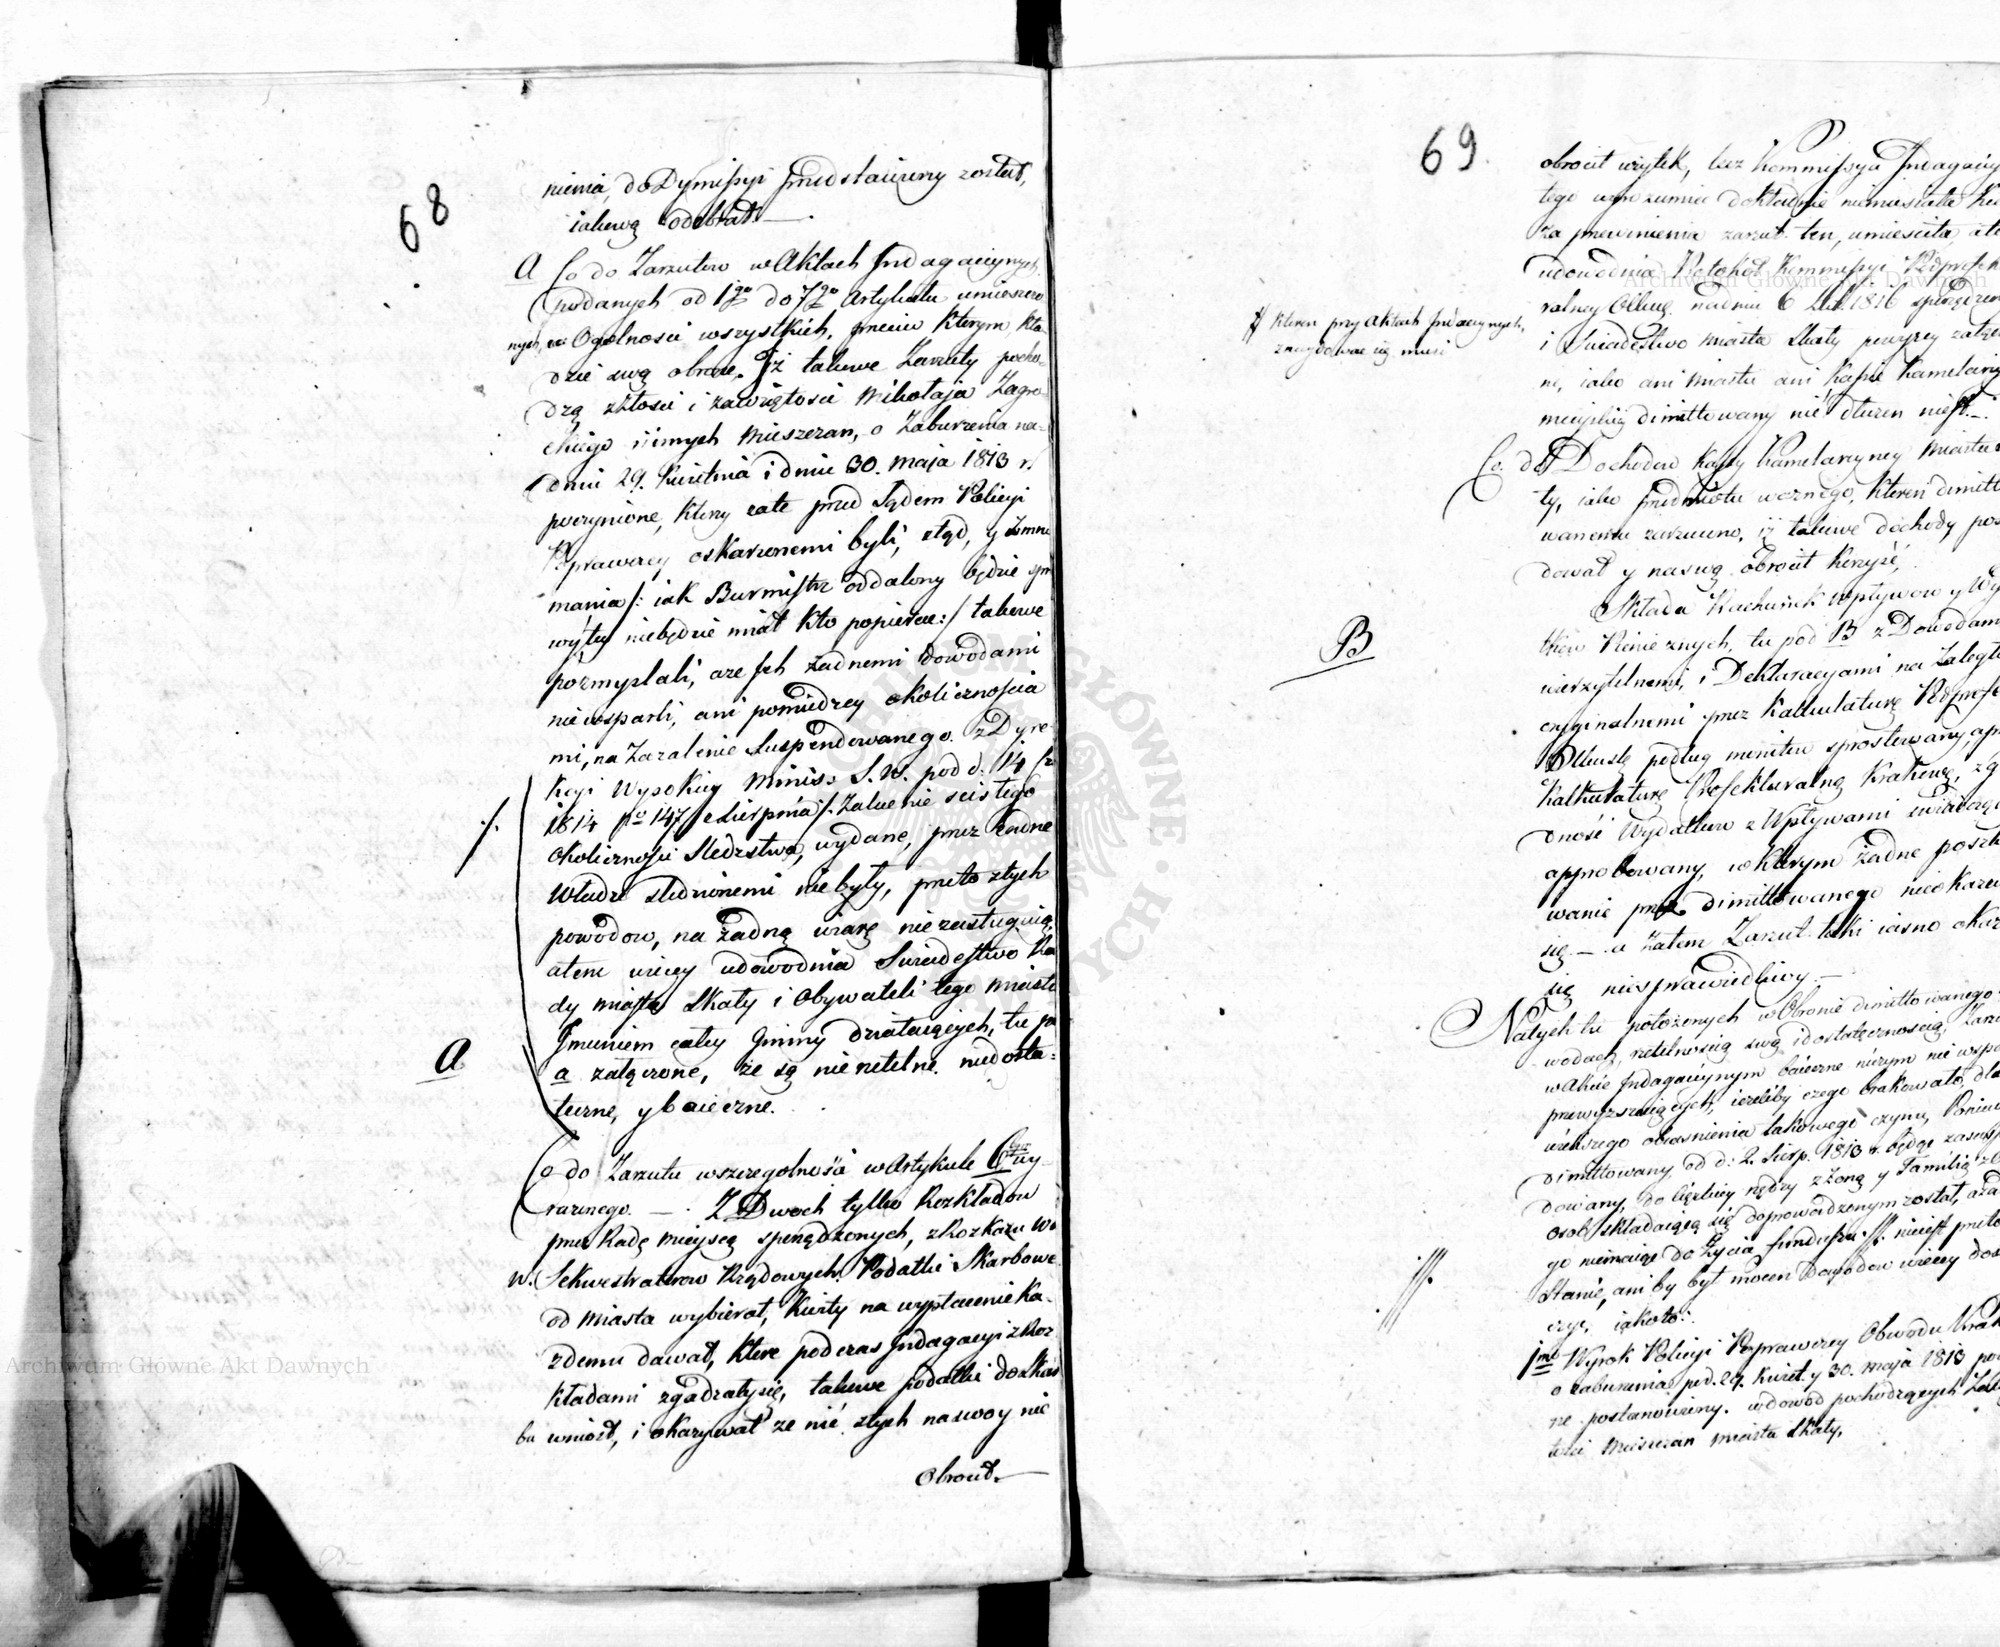 68
nienia, do Dymissyi przedstawiony został,
iakową odebrał. —
A Co do Zarzutow w Aktach Indagacyinych
podanych od 1go do 72o Artykułu umieszczo
nych, w Ogolnosci wszystkich, przeciw ktorym kła-
dzie swą obronę. Iż takowe Zarzuty pocho-
dzą złości i zawziętości Mikołaja Zagro-
ckiego i innych Mieszczan, o Zaburzenia na-
dniu 29. Kwietnia i dniu 30. Maja 1813 r.
poczynione, ktorzy przed Sądem Policyi
Poprawczey oskarzonemi byli, ztąd, y
mania /: iak Burmistrz oddalony będzie
niebędzie miał kto popierać :/ takowe
pozmyslali, a ze Ich żadnemi dowodami
niewsparli, ani pomiedzy okolicznościa
mi, na Zazalenie Suspendowanego z Dyre-
kcyi Wysokiey Minis: S. W. pod d. 14 Cz
1814 No 147 e Sierpnia /. Zalecenie scisłego
okoliczności Sledztwa, wydane, przez żadne
Władze sledzionemi nie były, przeto z tych
powodow, na żadną wiarę nie zasługuią,
a tem wiecey udowodnia Swiadectwo Ra
dy Miasta Skały i Obywateli tego Miasta
Imieniem całey Gminy działaiących, tu po
A
a załączone, że są nierzetelne niedosta-
teczne, y baieczne.
Co do Zarzutu wszczegolnośći w Artykule 6tym wy-
razonego. — Z Dwoch tylko Rozkładow
przez Radę Mieyscą sporządzonych, z Rozkazu W
W. Sekwestratorow Rządowych Podatki Skarbowe
od Miasta wybierał, Kwity na wypłacenie Ka-
zdemu dawał, ktore podczas Indagacyi z Roz
kładami zgadzały się, takowe podatki do Skar
bu wniosł, i okazywał ze nić z tych na swoy nie
Obrocił. —
69.
obrocił użytek, lecz Kommissya Indagacyi
tego wyrozumieć dokładnie niemusiała
za przewinienie zarzut ten, umieściła, a
udowodnia Protokół Kommissyi Podprefek
ralney Olkus. na dniu 6 Lut. 1816 sporządzon
# Ktoren przy Aktach Indacyinych,
znaydować się musi
i Swiadectwo Miasta Skały powyżey załączo
ne, iako ani Miastu ani Kassie Kamelaryi
mieyskiey dimittowany nić dłużen niest. —
Co do Dochodow Kassy Kamelaryney Miasta
ty, iako przedmiotu wcznego, ktoren dimitto
wanemu zarzucono, iż takowe dochody pos
dował y na swą obrocił Korzyść,
Składa Rachunek Wpływow y Wy
B
tkow Pienieznych, tu pod B z Dowodami
wierzytelnemi, i Deklaracyami na Zaległ
oryginalnemi przez Kalkulaturę Podprefe
Olkuską podług monitow sprostowany, a p
Kalkulaturę Prefekturalną Krakowską, zg
dność Wydatkow z Wpływami
approbowany, w ktorym żadne poszk
wanie przez dimittowanego nieokazuie
się — a zatem Zarzut taki iasno okaz
się niesprawiedliwy. —
Na tych tu położonych w Obronie dimittowanego
wodach, rzetelnoscią swą i dostatecznoscią, Zarzu
w Akcie Indagacyinym baieczne niczym nie wspa
przewyższaiących, ieżeliby czego brakowało, dla
wiekszego obiasnienia takowego czynu, Poniew
dimittowany, od d: 2. Sierp. 1813 r. będąc zasusp
dowany, do Cięzkiey nędzy z Żoną y Familią z 6
osob składaiącą się doprowadzonym został, a ża
go niemaiąc do Życia funduszu :/. nieiest przeto
stanie, ani by był mocen Dowodow wiecey dos
czyć, iakoto:
1mo Wyrok Policyi Poprawczey Obwodu Krak
o zaburzenia pod d. 29. Kwiet. y 30. Maja 1813
ne postanowiony. w dowod pochodzących Za
tosci Mieszczan Miasta Skały,